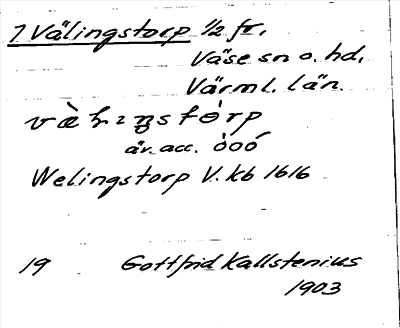 1 Välingstorp 1/2 fr.
Väse sn o. hd.
Värml. län.
äv. acc. òoó
Welingstorp V. kb 1616
19 Gottfrid Kallstenius
1903